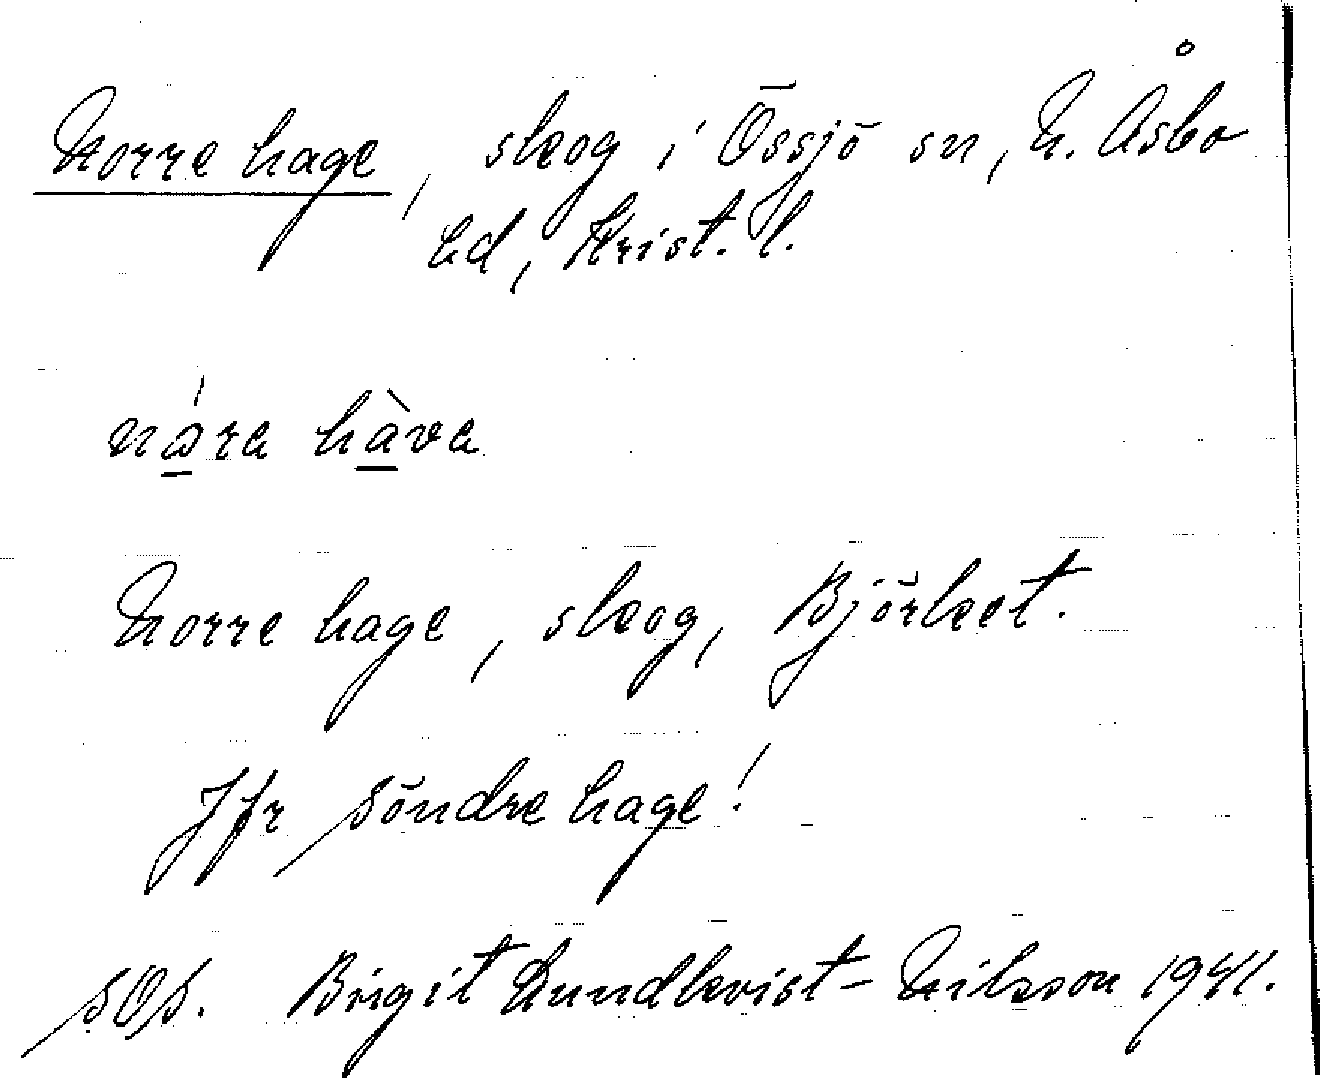 Norre hage, skog i Össjö sn, N. Åsbo
hd, Krist. l.
nára hàva
Norre hage, skog, Björket.
Jfr Söndre hage!
SOS. Birgit Lundkvist-Nilsson 1941.